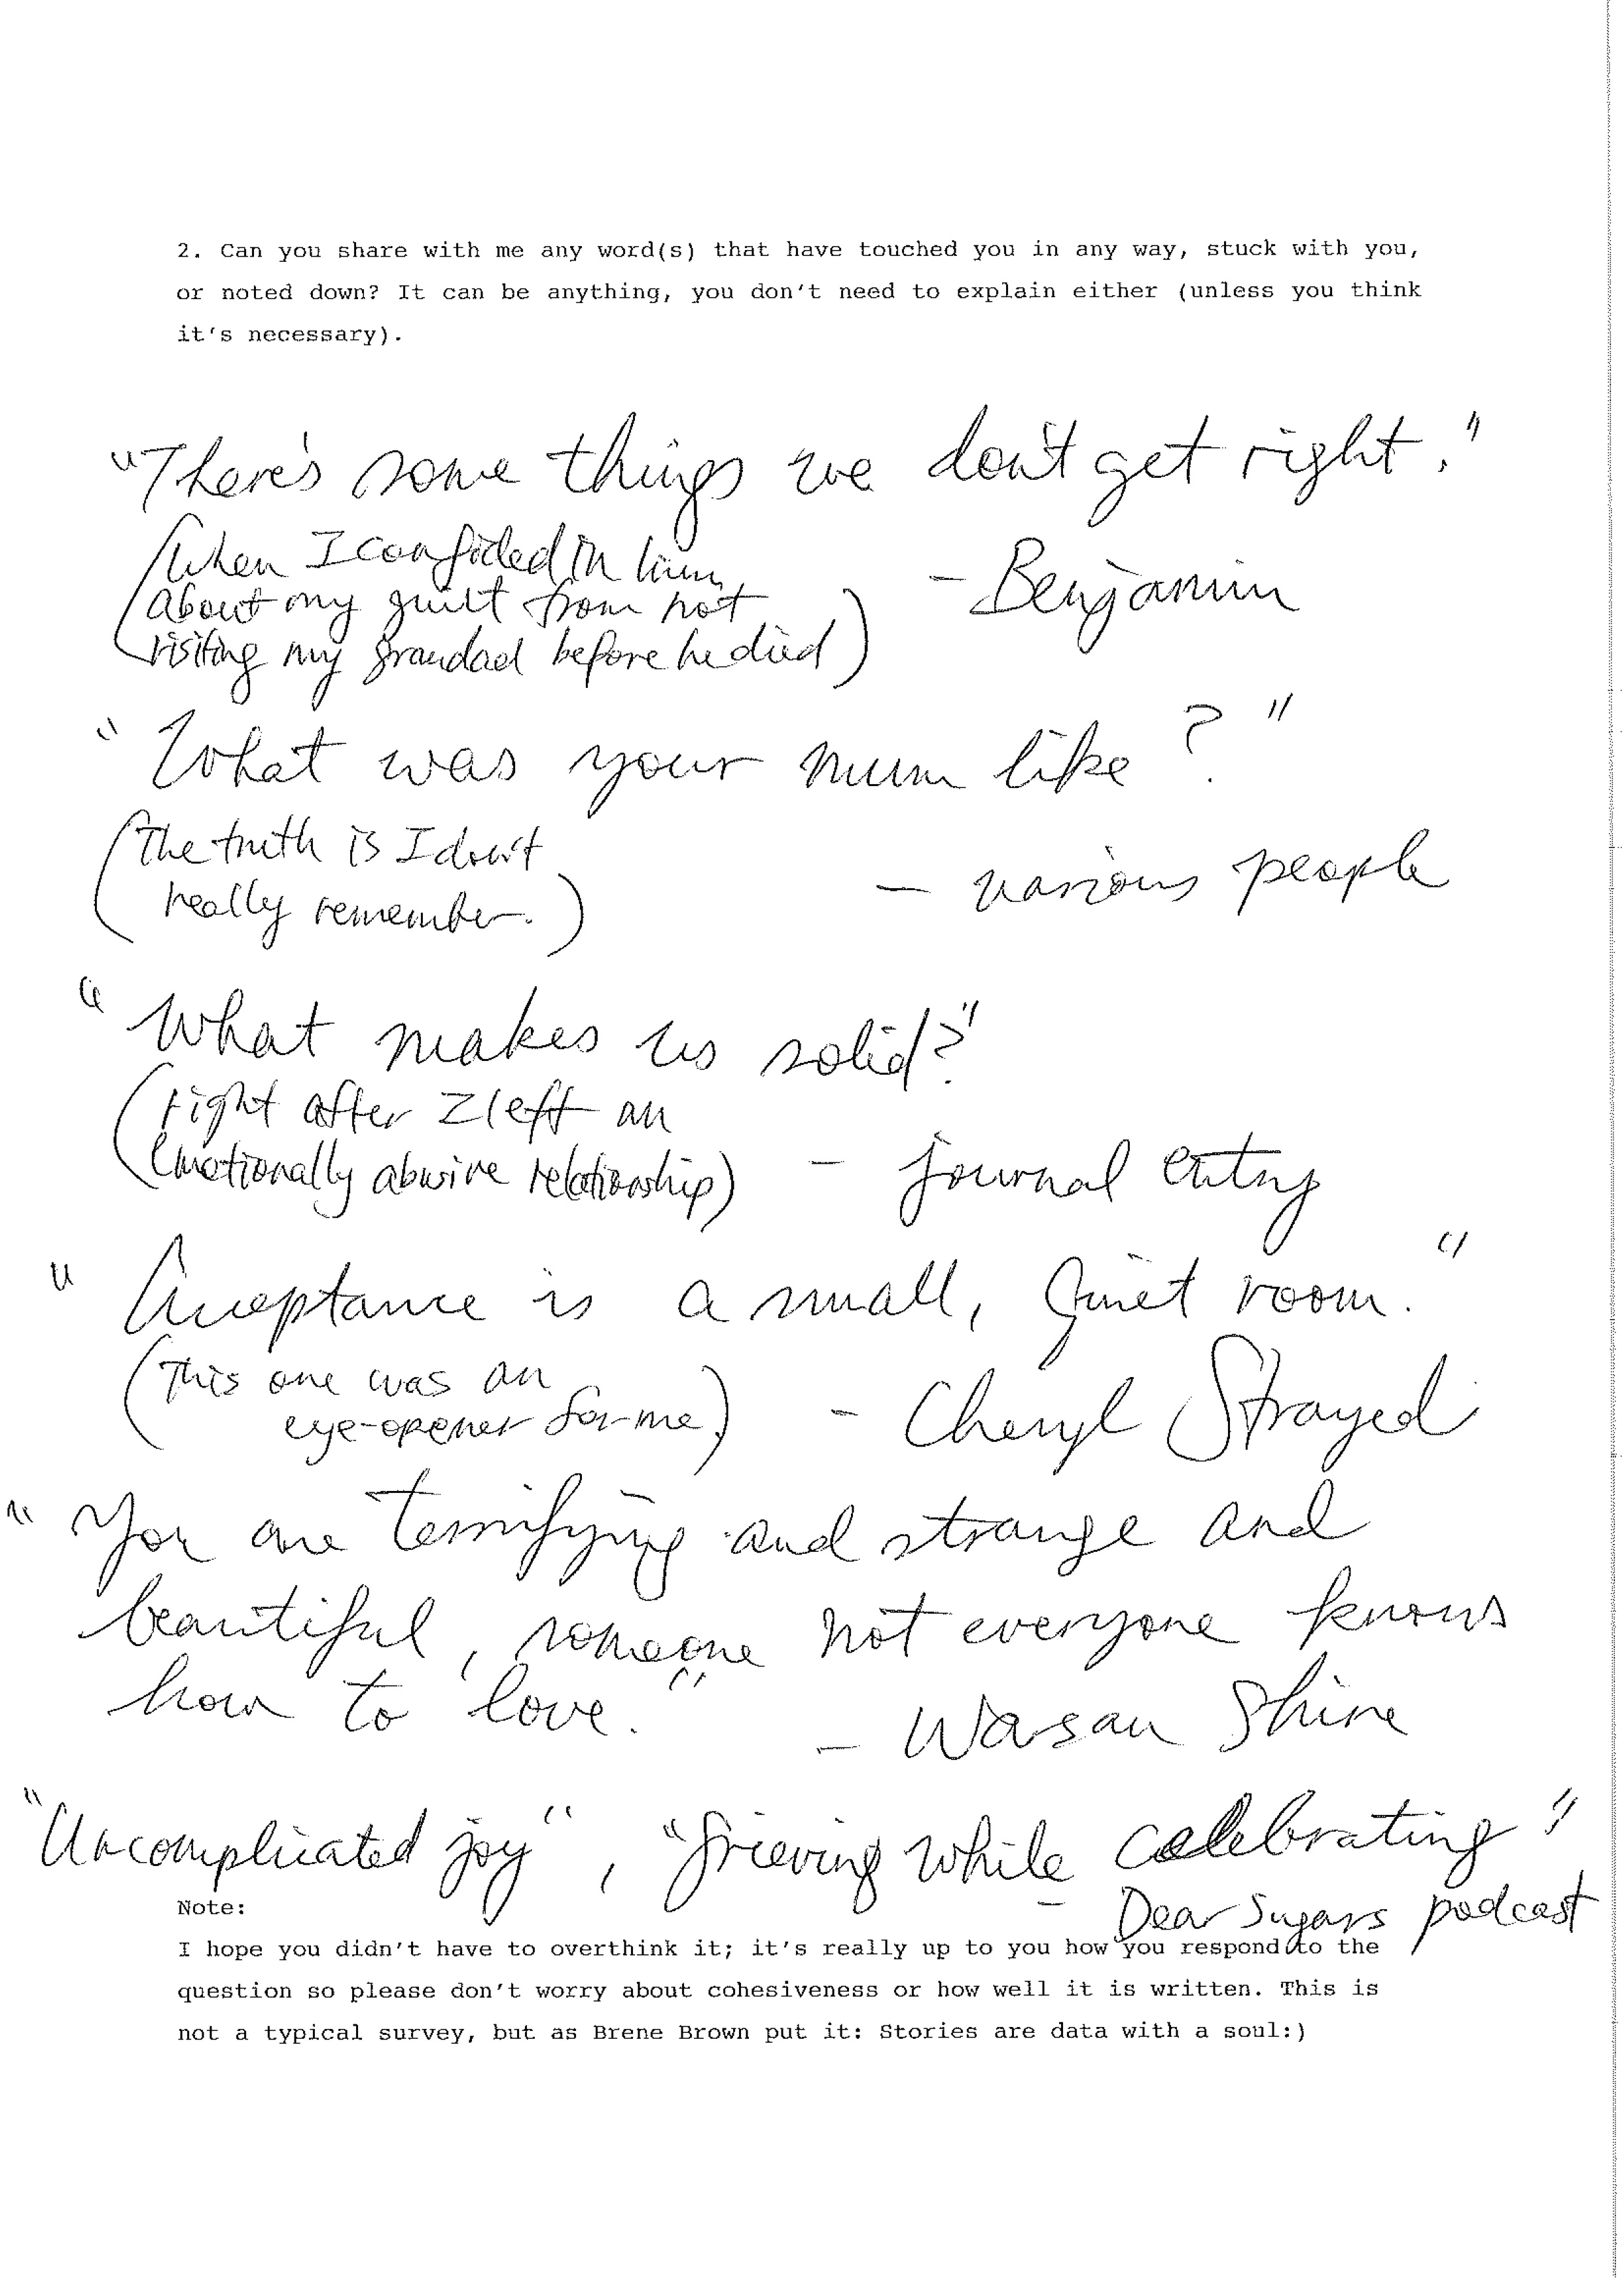 2. Can you share with me any word(s) that have touched you in any way, stuck with you,
or noted down? It can be anything, you don't need to explain either (unless you think
it's necessary).
"There's some things we don't get right."
(When I confided in him
about my guilt from not
visiting my grandad before he died)
- Benjamin
"What was your mum like?"
(The truth is I don't
really remember.)
- various people
"What makes us solid?"
(right after I left an
emotionally abusive relationship)
- journal entry
"Acceptance is a small, quiet room."
(This one was an
eye-opener for me)
- Cheryl Strayed
"You are terrifying and strange and
beautiful, someone not everyone knows
how to love."
- Warsan Shire
"Uncomplicated joy", "grieving while celebrating"
- Dear Sugars podcast
Note:
I hope you didn't have to overthink it; it's really up to you how you respond to the
question so please don't worry about cohesiveness or how well it is written. This is
not a typical survey, but as Brene Brown put it: Stories are data with a soul:)